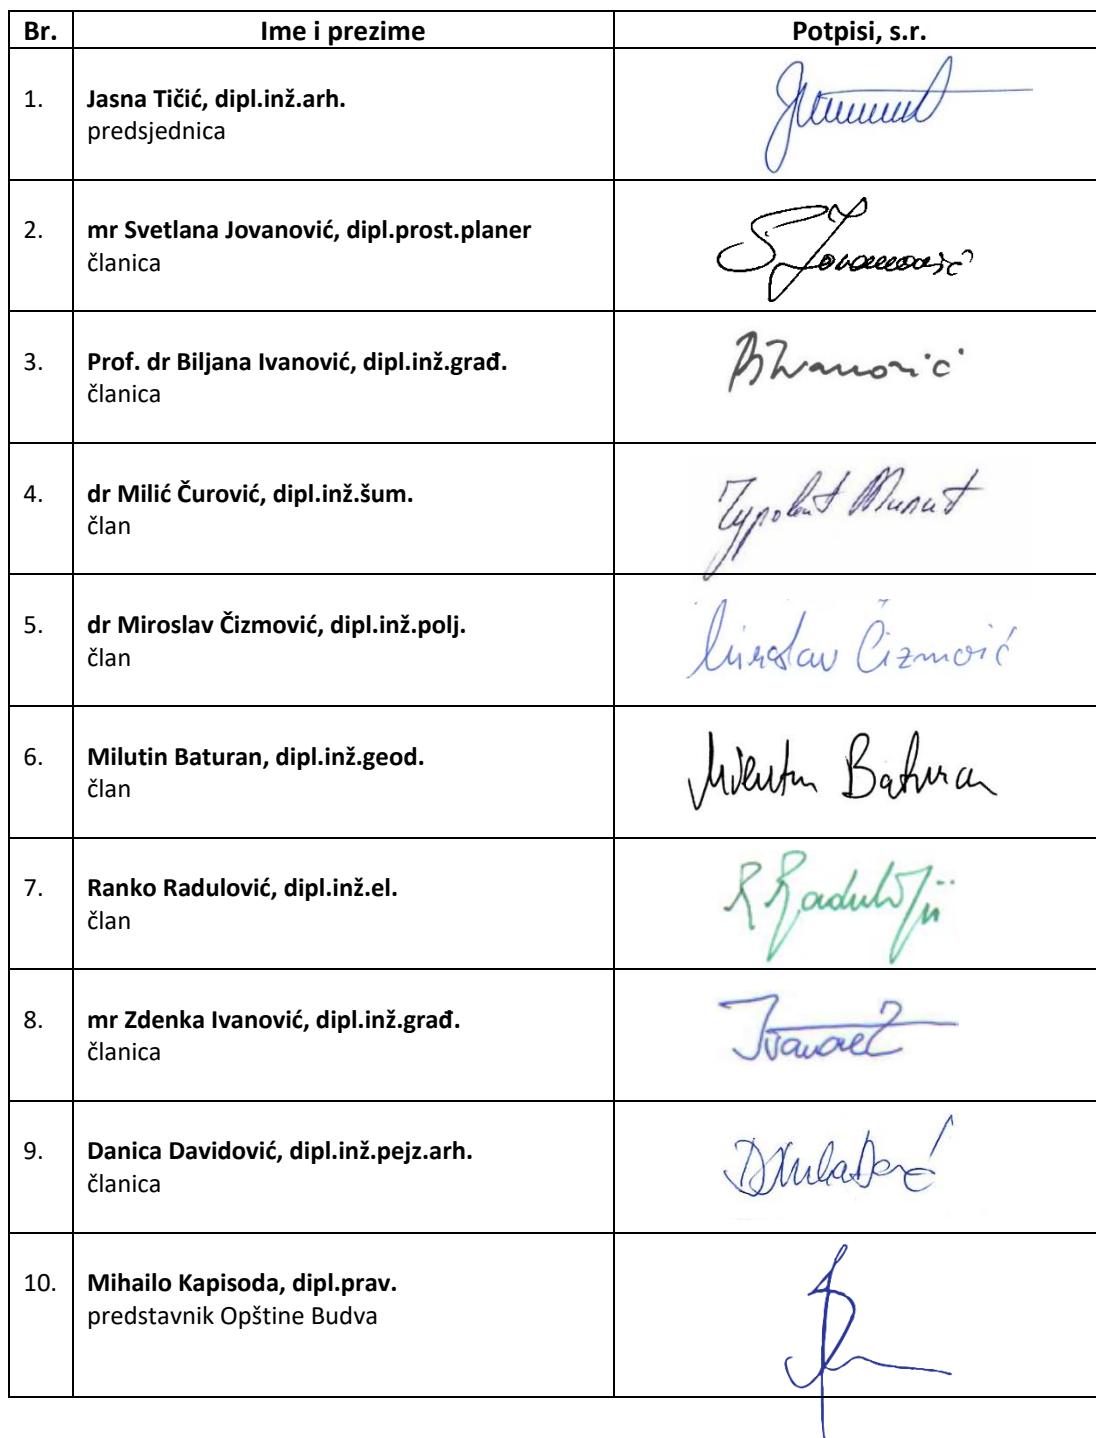 Br. Ime i prezime Potpisi, s.r.
1. Jasna Tičić, dipl.inž.arh.
predsjednica
2. mr Svetlana Jovanović, dipl.prost.planer
članica
S. Jovanović
3. Prof. dr Biljana Ivanović, dipl.inž.građ.
članica
BIvanović
4. dr Milić Čurović, dipl.inž.šum.
član
5. dr Miroslav Čizmović, dipl.inž.polj.
član
Miroslav Čizmović
6. Milutin Baturan, dipl.inž.geod.
član
Milutin Baturan
7. Ranko Radulović, dipl.inž.el.
član
8. mr Zdenka Ivanović, dipl.inž.građ.
članica
9. Danica Davidović, dipl.inž.pejz.arh.
članica
10. Mihailo Kapisoda, dipl.prav.
predstavnik Opštine Budva